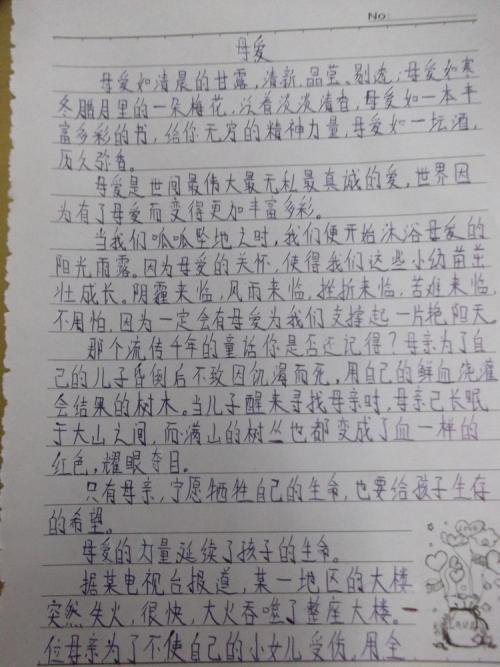 No:
母爱
母爱如清晨的甘露,清新、晶莹、剔透;母爱如寒
冬腊月里的一朵梅花,淡淡清香,母爱如一本丰
富多彩的书,给你无穷的精神力量,母爱如一坛酒,
历久弥香。
母爱是世间最伟大最无私最真诚的爱,世界因
为有了母爱而变得更加丰富多彩。
当我们呱呱坠地之时,我们便开始沐浴母爱的
阳光雨露。因为母爱的关怀,使得我们这些小幼苗茁
壮成长。阴霾来临,风雨来临,挫折来临,苦难来临,
不用怕,因为一定会有母爱为我们支撑起一片艳阳天。
那个流传千年的童话你是否还记得?母亲为了自
己的儿子昏倒后不致因饥渴而死,用自己的鲜血浇灌
会结果的树木。当儿子醒来寻找母亲时,母亲已长眠
于大山之间,而满山的树丛也都变成了血一样的
红色,耀眼夺目。
只有母亲,宁愿牺牲自己的生命,也要给孩子生存
的希望。
母爱的力量延续了孩子的生命。
据某电视台报道,某一地区的大楼
突然失火,很快,大火吞噬了整座大楼。一
位母亲为了不使自己的小女儿受伤,用全